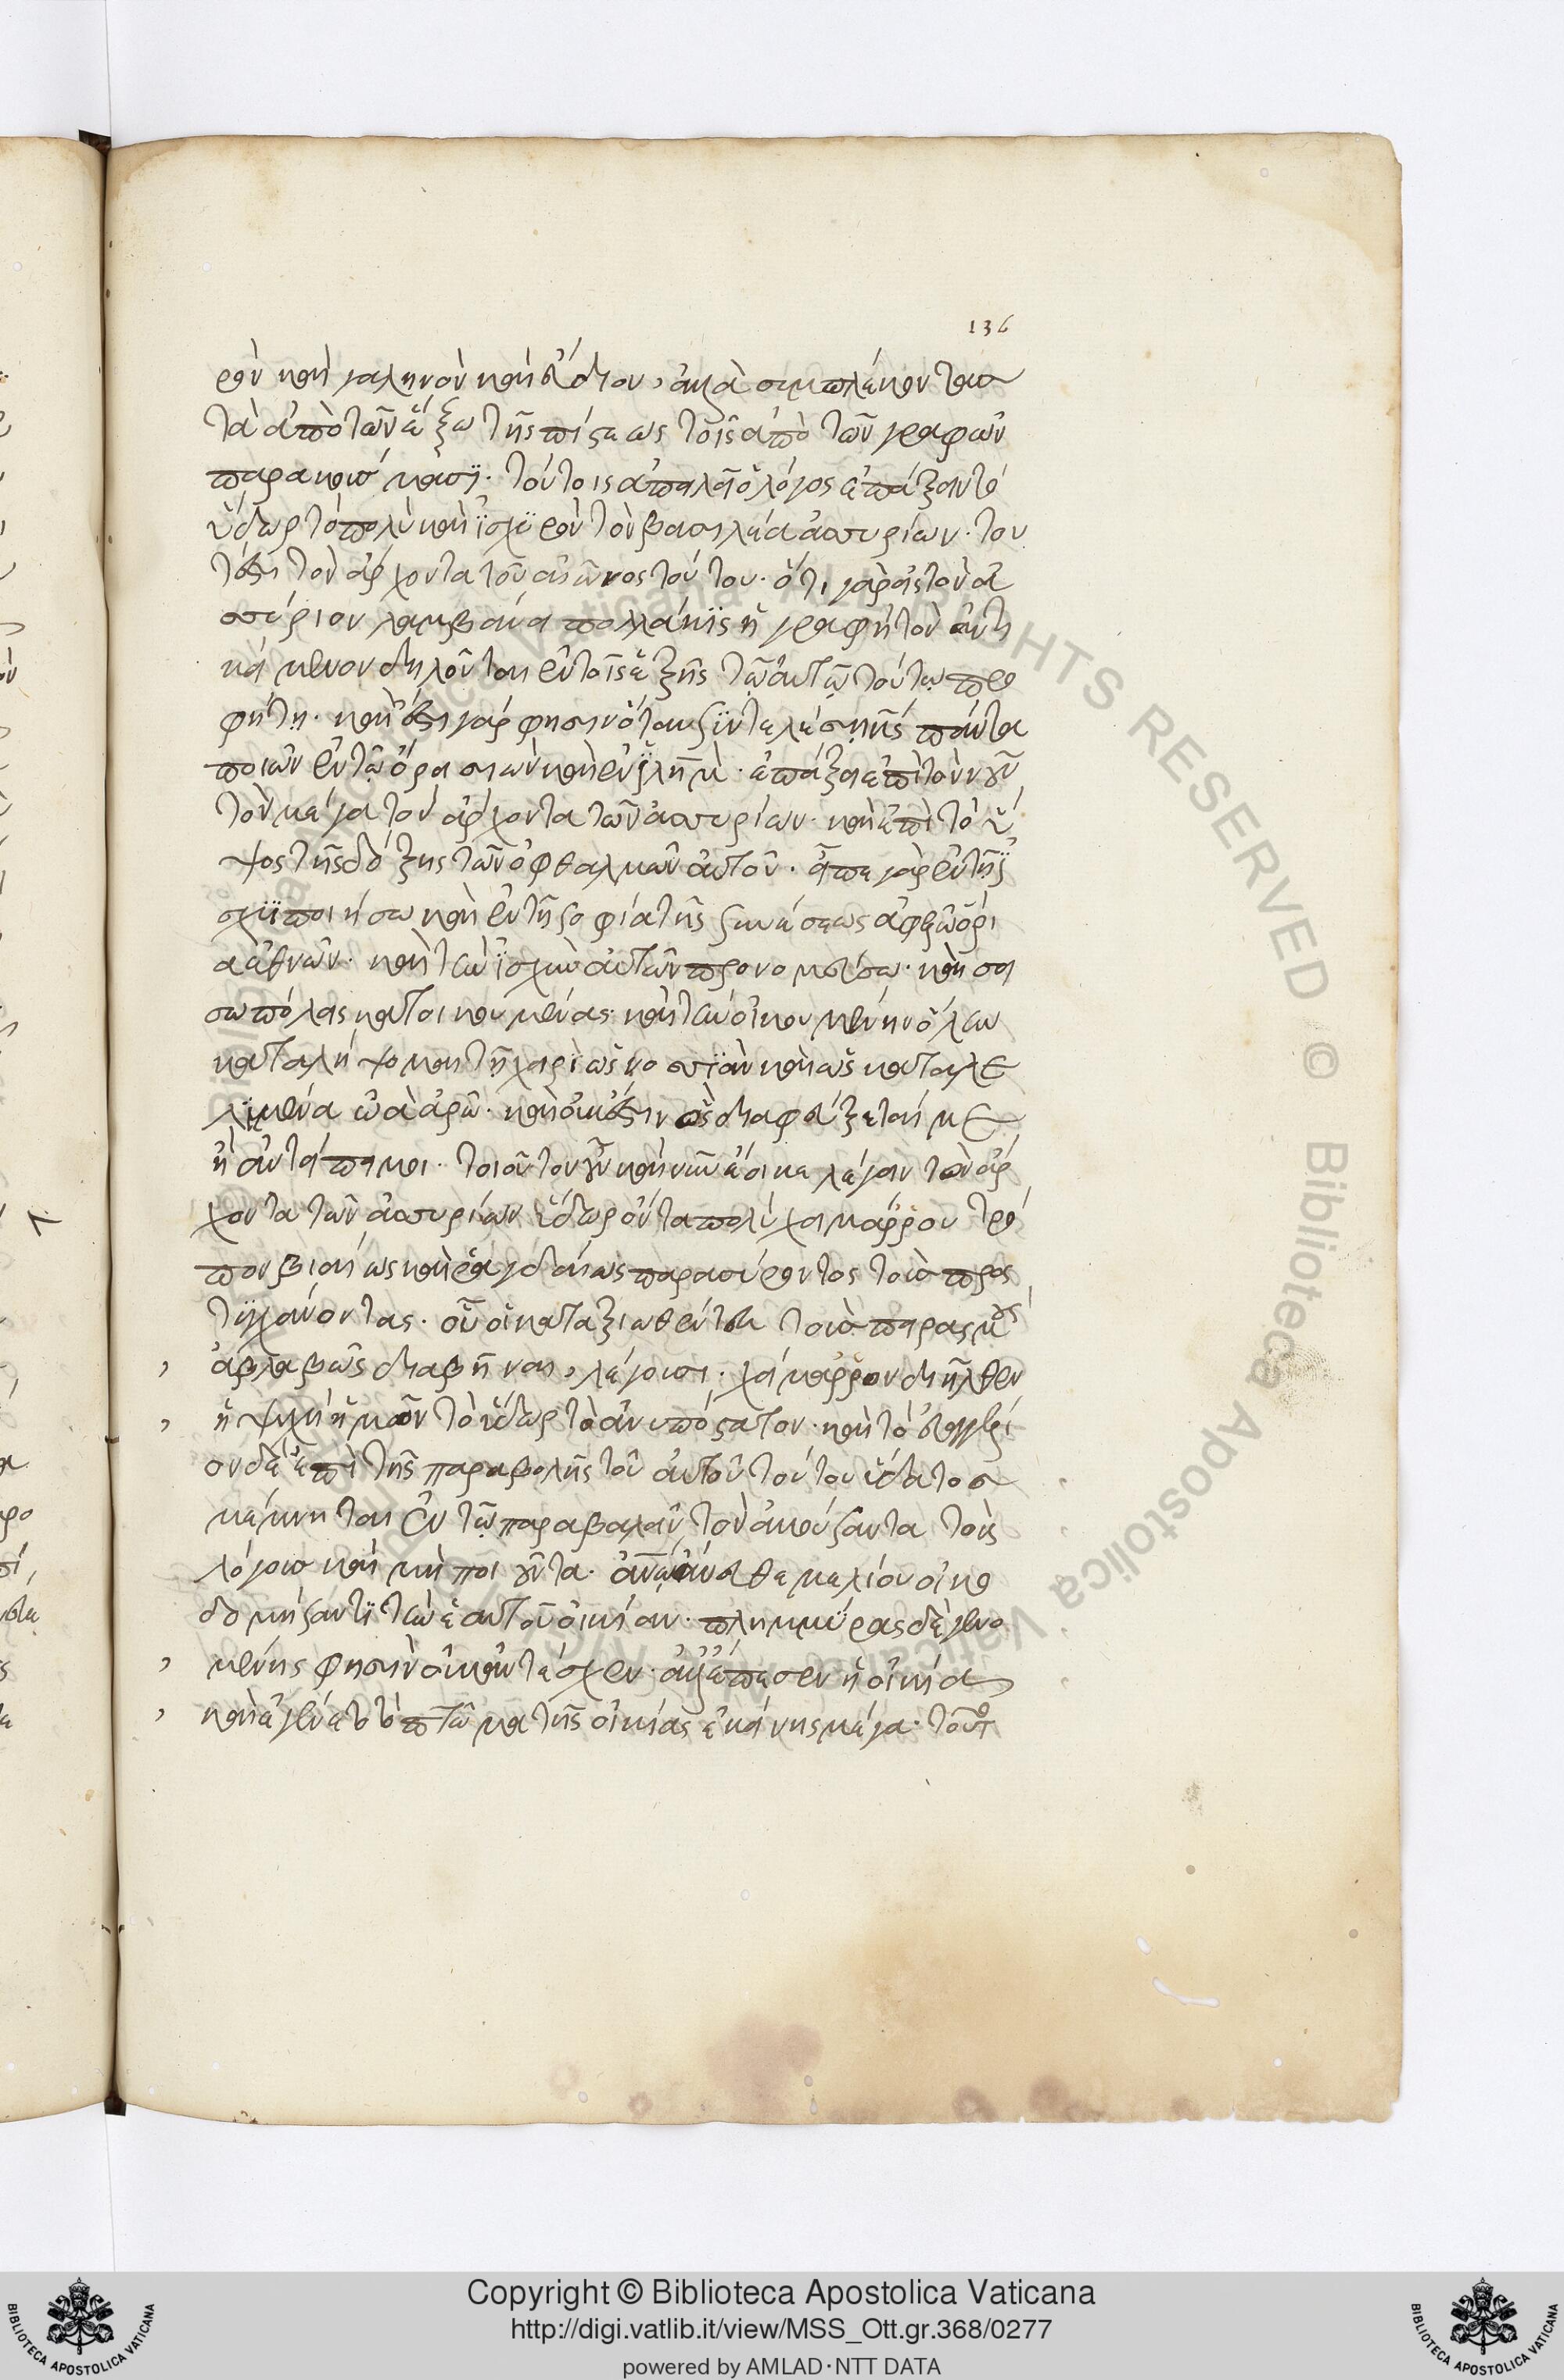 136
ρὸν καὶ γαληνὸν καὶ εὔδιον, ἀλλὰ συμπλέκονται
τὰ ἀπὸ τῶν ἔξω τῆς πίστεως τοῖς ἀπὸ τῶν γραφῶν
τούτοις ἀπειλεῖ ὁ λόγος ἐπάξειν τὸ
ὕδωρ τὸ πολὺ καὶ ἰσχυρὸν τὸν βασιλέα ἀσσυρίων· του
τέστι τὸν ἄρχοντα τοῦ αἰῶνος τούτου. ὅτι γὰρ εἰς τὸν ἀσ
σύριον λαμβάνει πολλάκις ἡ γραφὴ τὸν ἀντι
κείμενον δηλοῦται ἐν τοῖς ἑξῆς τῷ αὐτῷ τούτῳ προ
φήτῃ· καὶ ἔσται γάρ φησιν ὅταν συντελέσῃ κς πάντα
ποιῶν ἐν τῷ ὄρει σιὼν καὶ ἐν ιλημ· ἐπάξει ἐπὶ τὸν νοῦν
τὸν μέγα τὸν ἄρχοντα τῶν ἀσσυρίων· καὶ ἐπὶ τὸ ὕ
ψος τῆς δόξης τῶν ὀφθαλμῶν αὐτοῦ. εἶπε γὰρ ἐν τῇ ἰ
σχύϊ ποιήσω καὶ ἐν τῇ σοφίᾳ τῆς συνέσεως ἀφελῶ ὅρι
α ἐθνῶν· καὶ τὴν ἰσχὺν αὐτῶν προνομεύσω· καὶ σεί
σω πόλεις κατοικουμένας· καὶ τὴν οἰκουμένην ὅλην
καταλήψομαι τῇ χειρὶ ὡς νοσσιὰν καὶ ὡς καταλε
λιμμένα ὠὰ ἀρῶ· καὶ οὐκ ἔστιν ὃς διαφεύξεταί με
ἢ ἀντείπῃ μοι. τοιοῦτον οὖν καὶ νῦν ἔοικε λέγειν τὸν ἄρ
χοντα τῶν ἀσσυρίων ὕδωρ ὄντα πολὺ χειμάρρου τρό
πον βιαίως καὶ ῥαγδαίως παρασύροντος τοὺς προσ
τυγχάνοντας. οὗ οἱ καταξιωθέντες τοὺς πειρασμοὺς
ἀβλαβῶς διαβῆναι, λέγουσι· χείμαρρον διῆλθεν
ἡ ψυχὴ ἡμῶν τὸ ὕδωρ τὸ ἀνυπόστατον· καὶ τὸ εὐαγγέλι
ον δὲ ἐπὶ τῆς παραβολῆς τοῦ αὐτοῦ τούτου ὕδατος
μέμνηται ἐν τῷ παραβαλεῖν τὸν ἀκούσαντα τοὺς
λόγους καὶ μὴ ποιοῦντα· ἀνῳ ἄνευ θεμελίου οἰκο
δομήσαντι τὴν ἑαυτοῦ οἰκίαν· πλημμύρας δὲ γενο
μένης φησὶν οὐκ ἀντέσχεν· ἀλλ' ἔπεσεν ἡ οἰκία
καὶ ἐγένετο τὸ πτῶμα τῆς οἰκίας ἐκείνης μέγα· τοῦτο